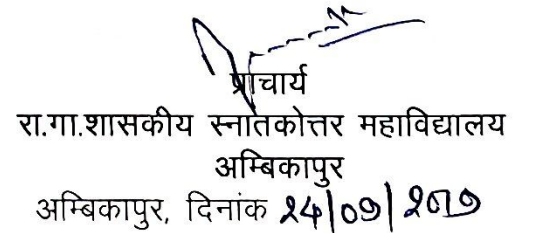 प्राचार्य
रा.गा.शासकीय स्नातकोत्तर महाविद्यालय
अम्बिकापुर
अम्बिकापुर, दिनांक 24/09/2019